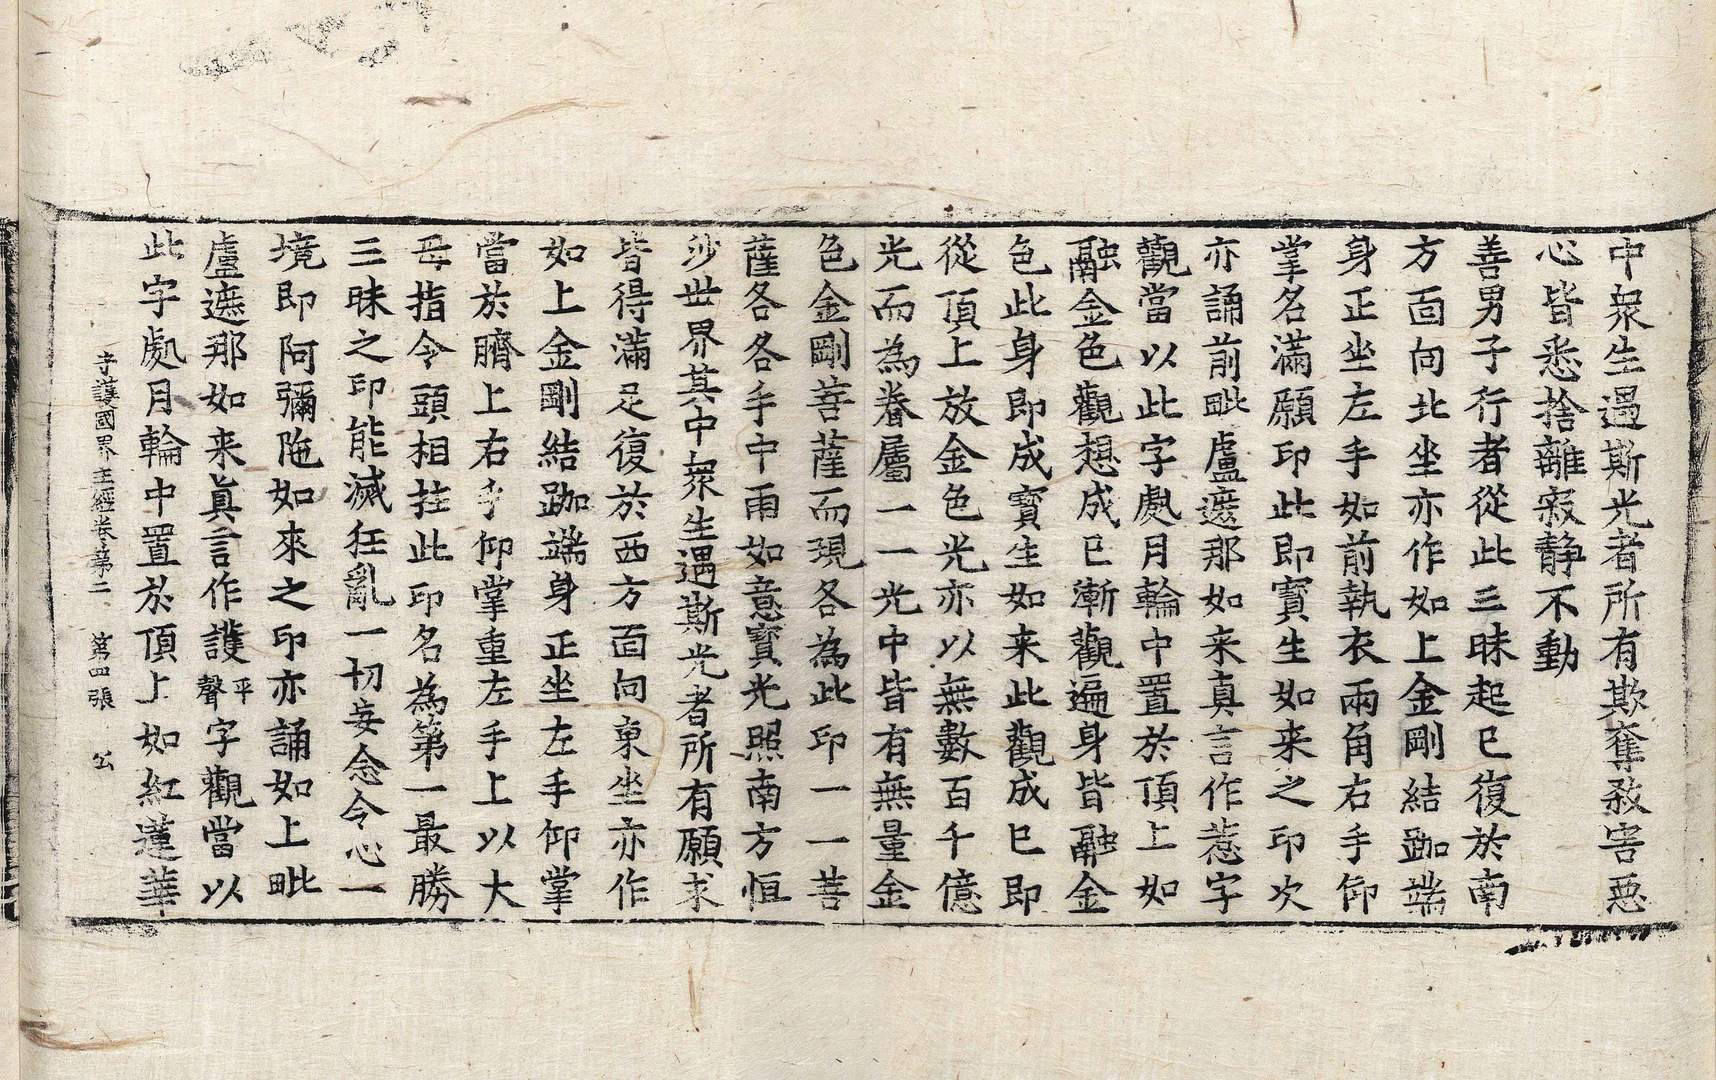 中衆生遇斯光者所有欺奪殺害惡
心皆悉捨離寂静不動
善男子行者從此三昧起已復於南
方面向北坐亦作如上金剛結跏端
身正坐左手如前執衣兩角右手仰
掌名滿願印此即寳生如来之印次
亦誦前毗盧遮那如来真言作惹字
觀當以此字處月輪中置於頂上如
融金色觀想成已漸觀遍身皆融金
色此身即成寳生如来此觀成已即
從頂上放金色光亦以無數百千億
光而為眷屬一一光中皆有無量金
色金剛菩薩而現各為此印一一菩
薩各各手中雨如意寳光照南方恒
沙世界其中衆生遇斯光者所有願求
皆得滿足復於西方面向東坐亦作
如上金剛結跏端身正坐左手仰掌
當於臍上右手仰掌重左手上以大
母指令頭相拄此印名為第一最勝
三昧之印能滅狂亂一切妄念令心一
境即阿彌陁如來之印亦誦如上毗
盧遮那如来眞言作護平聲字觀當以
此字處月輪中置於頂上如紅蓮華
守護國界主經卷第二 第四張 公